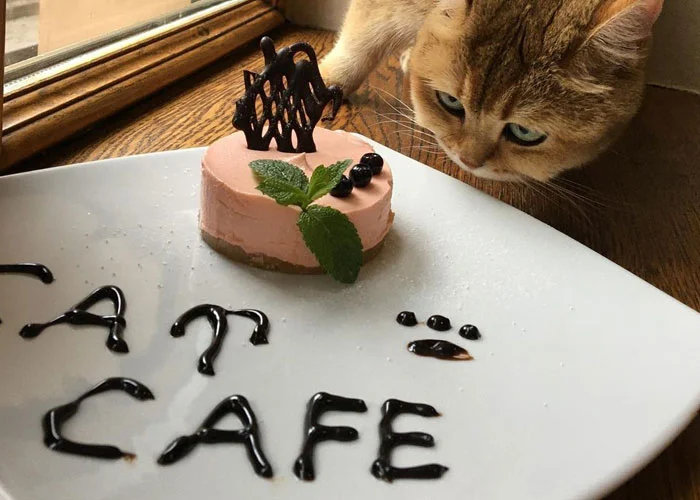 CAT
CAFE